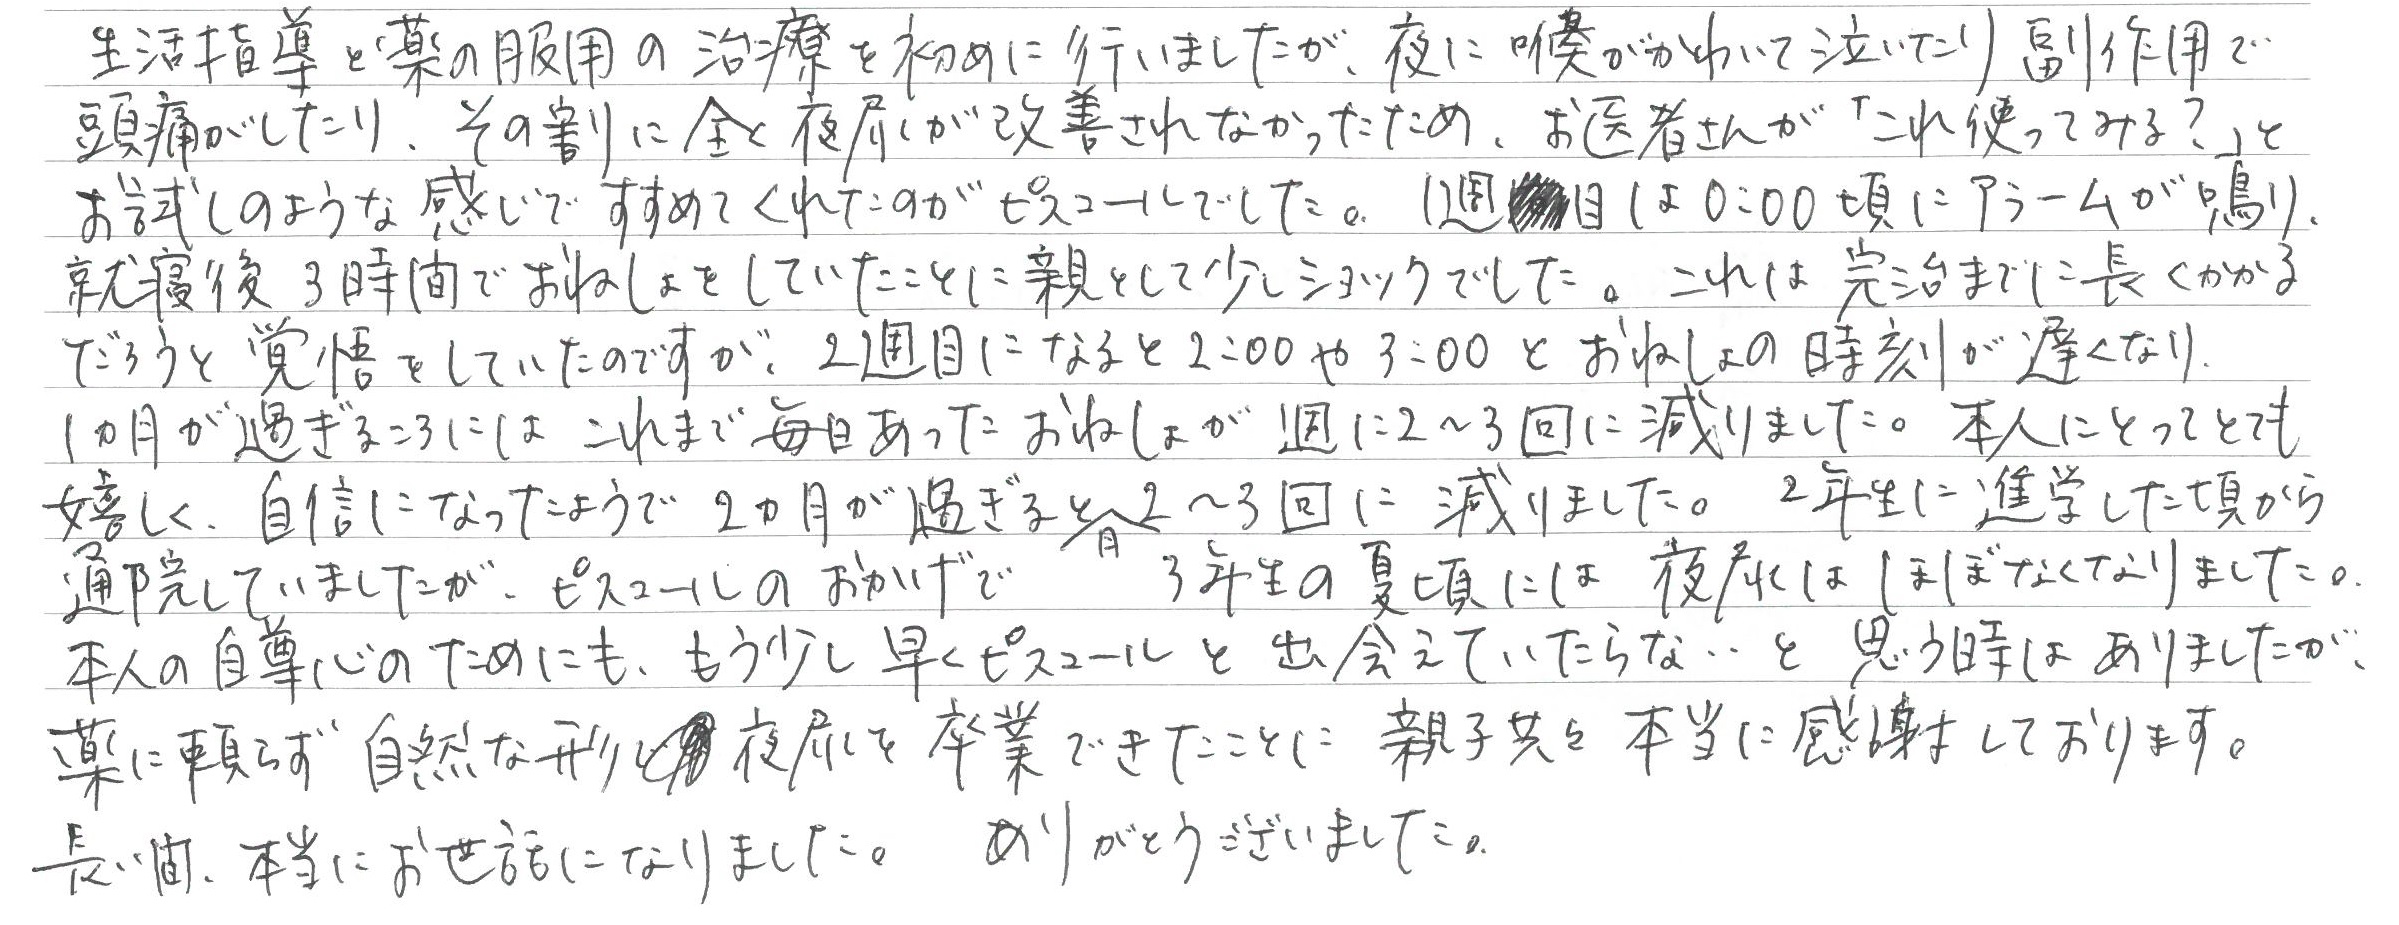 生活指導と薬の服用の治療を初めに行いましたが、夜に喉がかわいて泣いたり副作用で
頭痛がしたり、その割に全く夜尿が改善されなかったため、お医者さんが「これ使ってみる?」と
お試しのような感じですすめてくれたのがピスコールでした。1週目は0:00頃にアラームが鳴り、
就寝後3時間でおねしょをしていたことに親として少しショックでした。これは完治までに長くかかる
だろうと覚悟をしていたのですが、2週目になると2:00や3:00とおねしょの時刻が遅くなり、
1カ月が過ぎるころにはこれまで毎日あったおねしょが週に2~3回に減りました。本人にとってとても
嬉しく、自信になったようで2カ月が過ぎると月2~3回に減りました。2年生に進学した頃から
通院していましたが、ピスコールのおかげで3年生の夏頃には夜尿はほぼなくなりました。
本人の自尊心のためにも、もう少し早くピスコールと出会えていたらな‥と思う時はありましたが、
薬に頼らず自然な形で夜尿を卒業できたことに親子共々本当に感謝しております。
長い間、本当にお世話になりました。ありがとうございました。